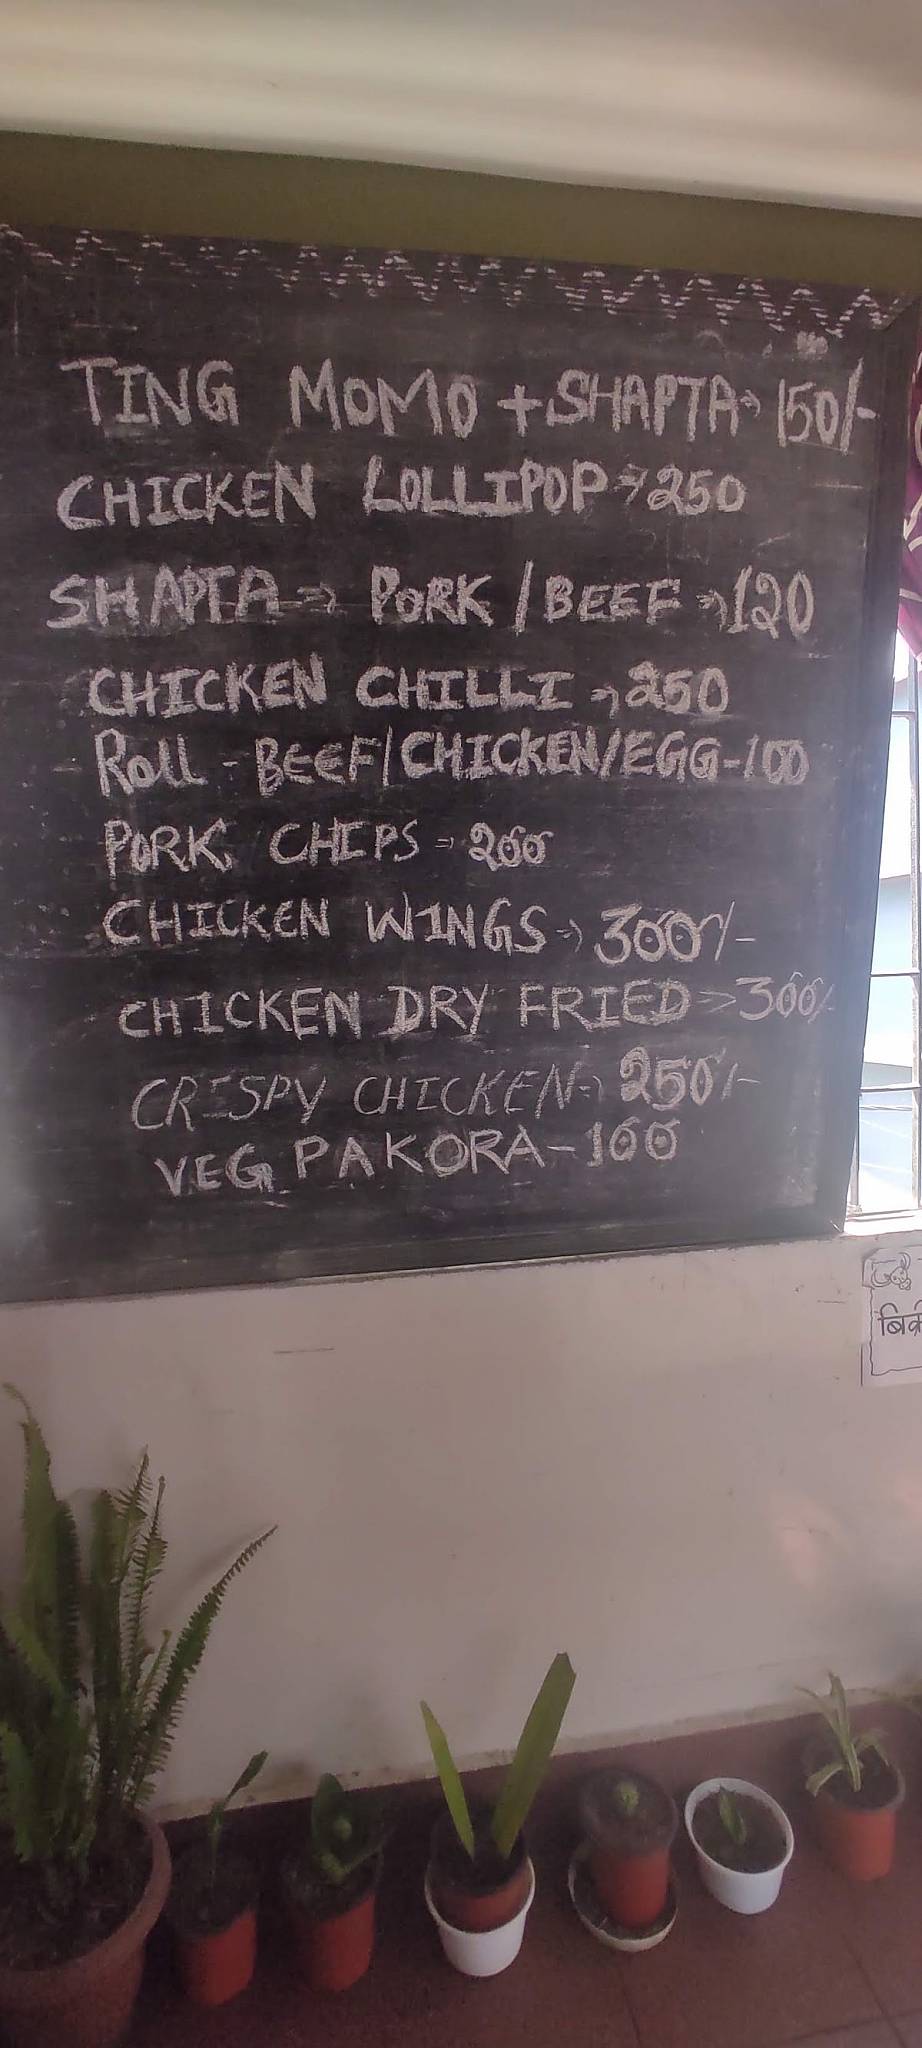 TING MOMO + SHAPTA → 150/-
CHICKEN LOLLIPOP → 250
SHAPTA → PORK / BEEF → 120
CHICKEN CHILLI → 250
Roll - BEEF/CHICKEN/EGG - 100
PORK CHIPS → 200
CHICKEN WINGS → 300/-
CHICKEN DRY FRIED → 300/-
CRISPY CHICKEN → 250/-
VEG PAKORA - 100